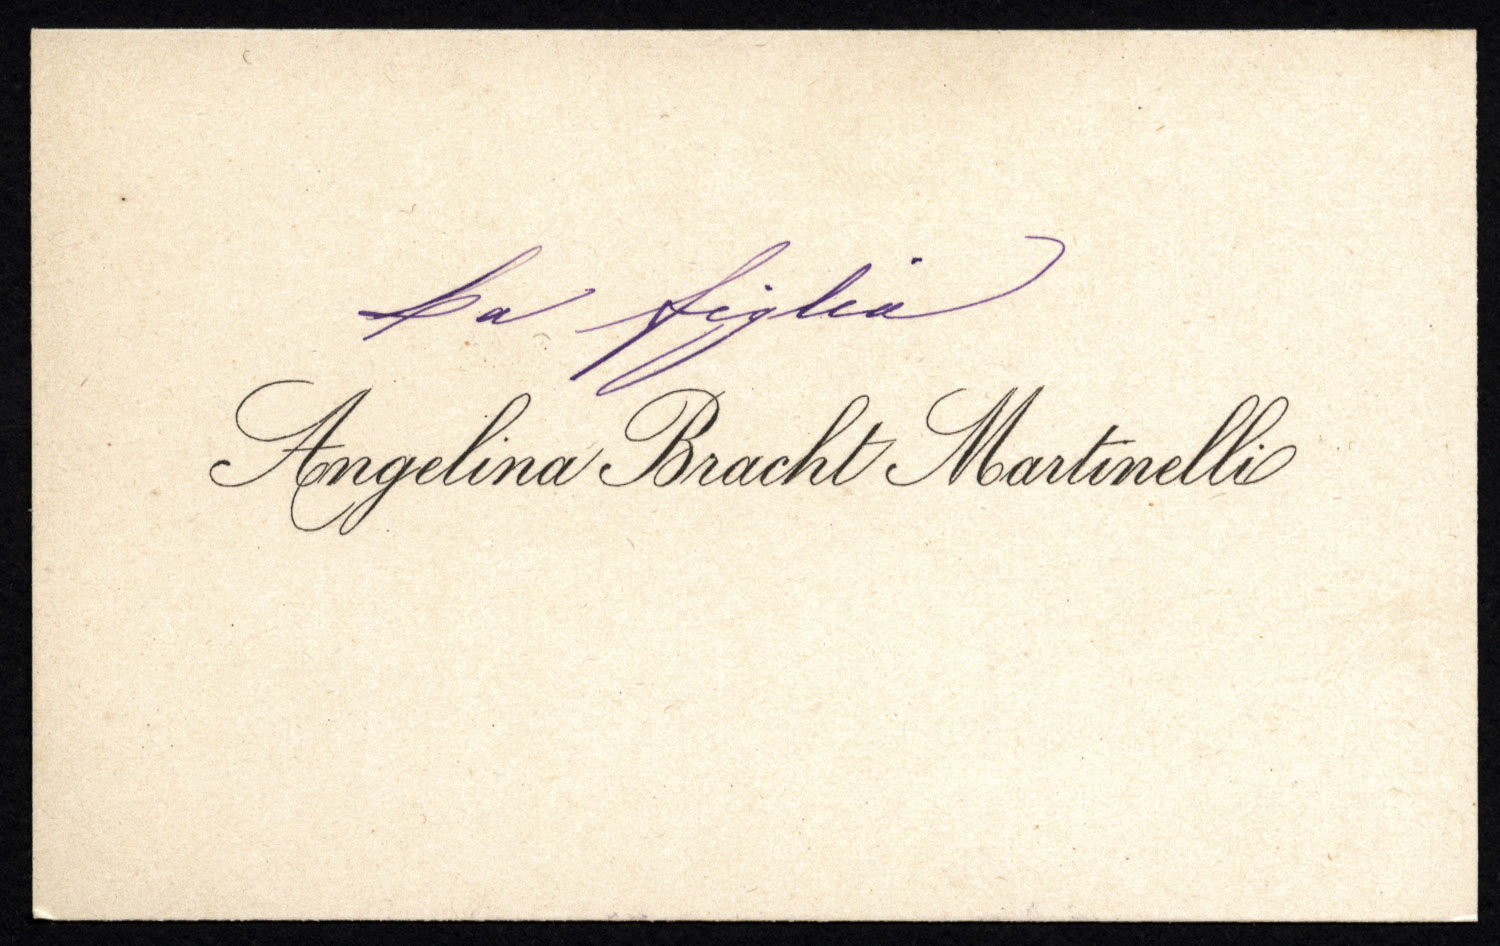 La figlia
Angelina Bracht Martinelli